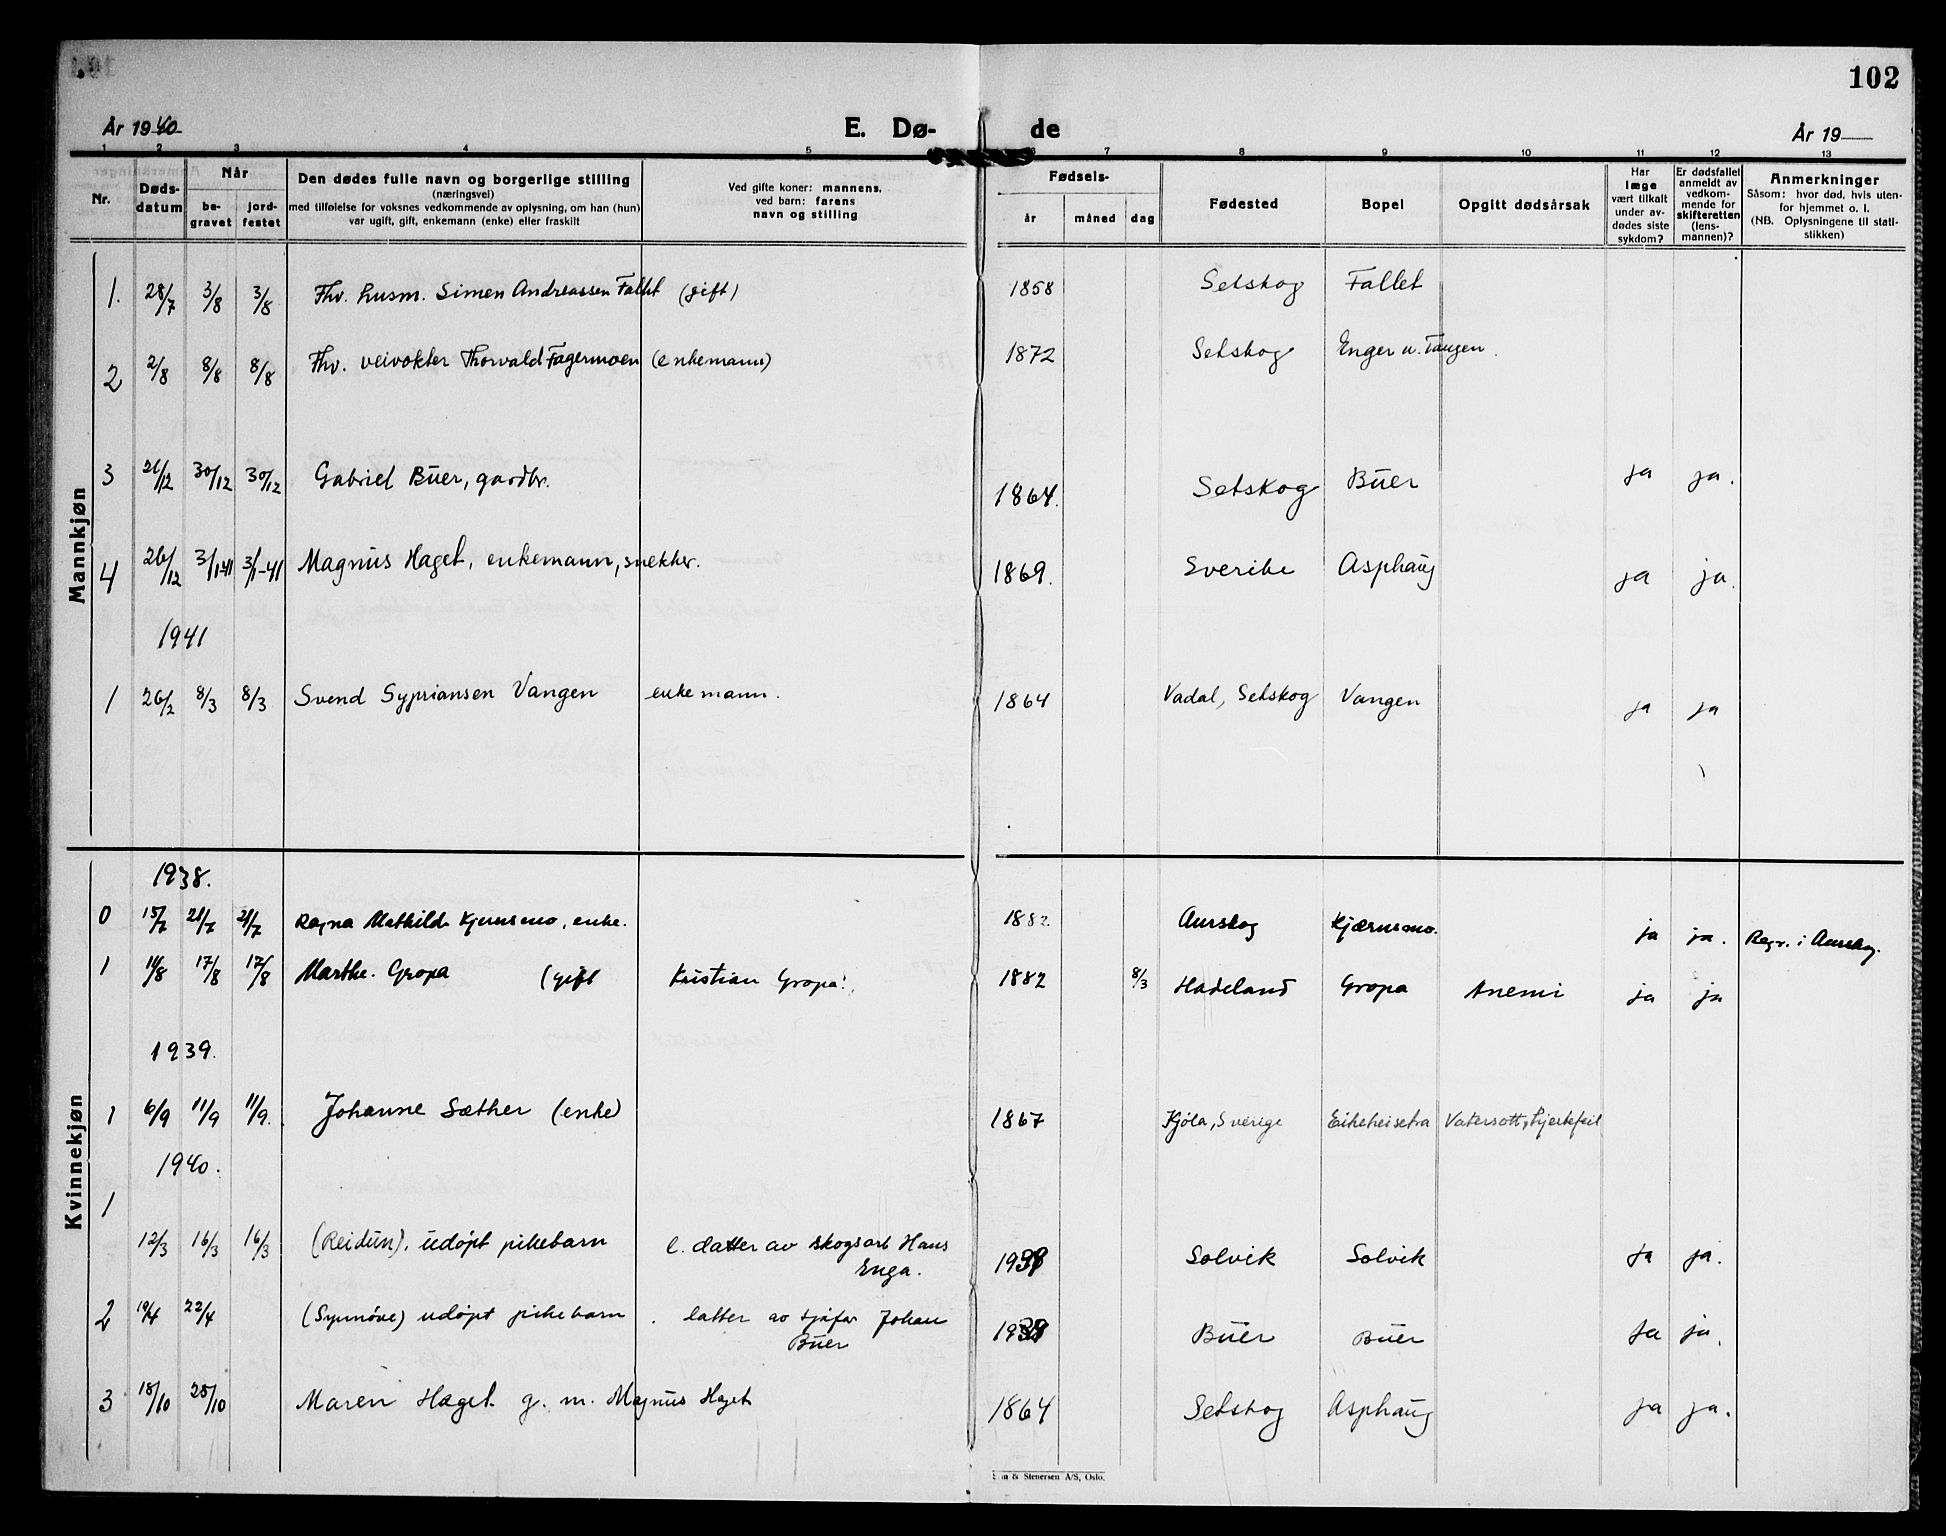 102
År 1940
E. Dø-
de
År 19
1 2 3 4 5 6 7 8 9 10 11 12 13
Nr.
Døds-
datum
Når
be-
gravet
jord-
festet
Den dødes fulle navn og borgerlige stilling
(næringsvei)
med tilføielse for voksnes vedkommende av oplysning, om han (hun)
var ugift, gift, enkemann (enke) eller fraskilt
Ved gifte koner: mannens,
ved barn: farens
navn og stilling
Fødsels-
år måned dag
Fødested
Bopel
Opgitt dødsårsak
Har
læge
vært tilkalt
under av-
dødes siste
sykdom?
Er dødsfallet
anmeldt av
vedkom-
mende for
skifteretten
(lens-
mannen)?
Anmerkninger
Såsom: hvor død, hvis uten-
for hjemmet o. l.
(NB. Oplysningene til stati-
stikken)
Mannkjøn
1. 28/7 3/8 3/8 Fhv. husm. Simen Andreassen Fallet (gift) 1858 Setskog Fallet
2 2/8 8/8 8/8 Fhv. veivokter Thorvald Fagermoen (enkemann) 1872 Setskog Enger u. Tangen.
3 21/12 30/12 30/12 Gabriel Buer, gardbr. 1864. Setskog Buer ja ja.
4 26/12 3/1-41 3/1-41 Magnus Haget, enkemann, snekker. 1869. Sverike Asphaug ja ja.
1941
1 26/2 8/3 8/3 Svend Sypriansen Vangen enkemann. 1864 Vadal, Setskog Vangen ja ja
Kvinnekjøn
1938.
0 15/7 21/7 21/7 Ragna Mathilde Kjernsmo, enke. 1882 Aurskog Kjærnsmo. ja ja. Regr. i Aurskog.
1 11/8 17/8 17/8 Marthe Gropa (gift Kristian Gropa. 1882 8/3 Hadeland Gropa Anemi ja ja
1939.
1 6/9 11/9 11/9. Johanne Sæther (enke) 1867 Kjøla, Sverige Eikeheisetra Vatersott, hjertefeil
1940.
1
12/3 16/3 16/3 (Reidun), udøpt pikebarn l. datter av skogsarb Hans
Enga. 1939 Solvik Solvik ja ja.
2 19/4 22/4 (Synnöve) udøpt pikebarn . datter av sjåfør Johan
Buer 1939 Buer Buer ja ja.
3 18/10 25/10 Maren Haget g. m. Magnus Haget 1864 Setskog Asphaug ja ja.
& Stenersen A/S, Oslo.